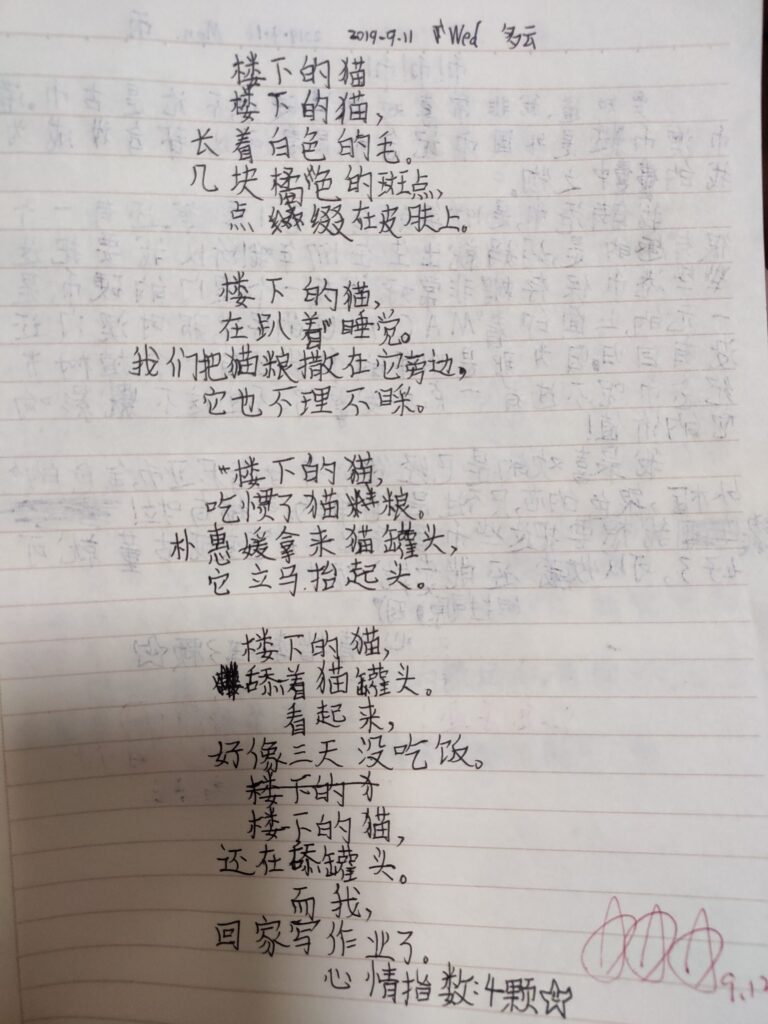 2019-9.11 Wed 多云
楼下的猫
楼下的猫，
长着白色的毛。
几块橘色的斑点，
点缀在皮肤上。
楼下的猫，
在趴着睡觉。
我们把猫粮撒在它旁边，
它也不理不睬。
"楼下的猫，
吃惯了猫粮。
朴惠媛拿来猫罐头，
它立马抬起头。
楼下的猫，
舔着猫罐头。
看起来，
好像三天没吃饭。
楼下的猫，
还在舔罐头。
而我，
回家写作业了。
心情指数：4颗☆
9.12